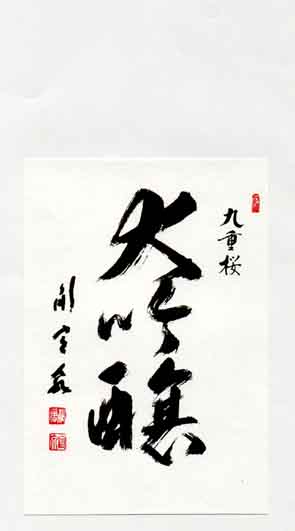 九重桜
大吟醸